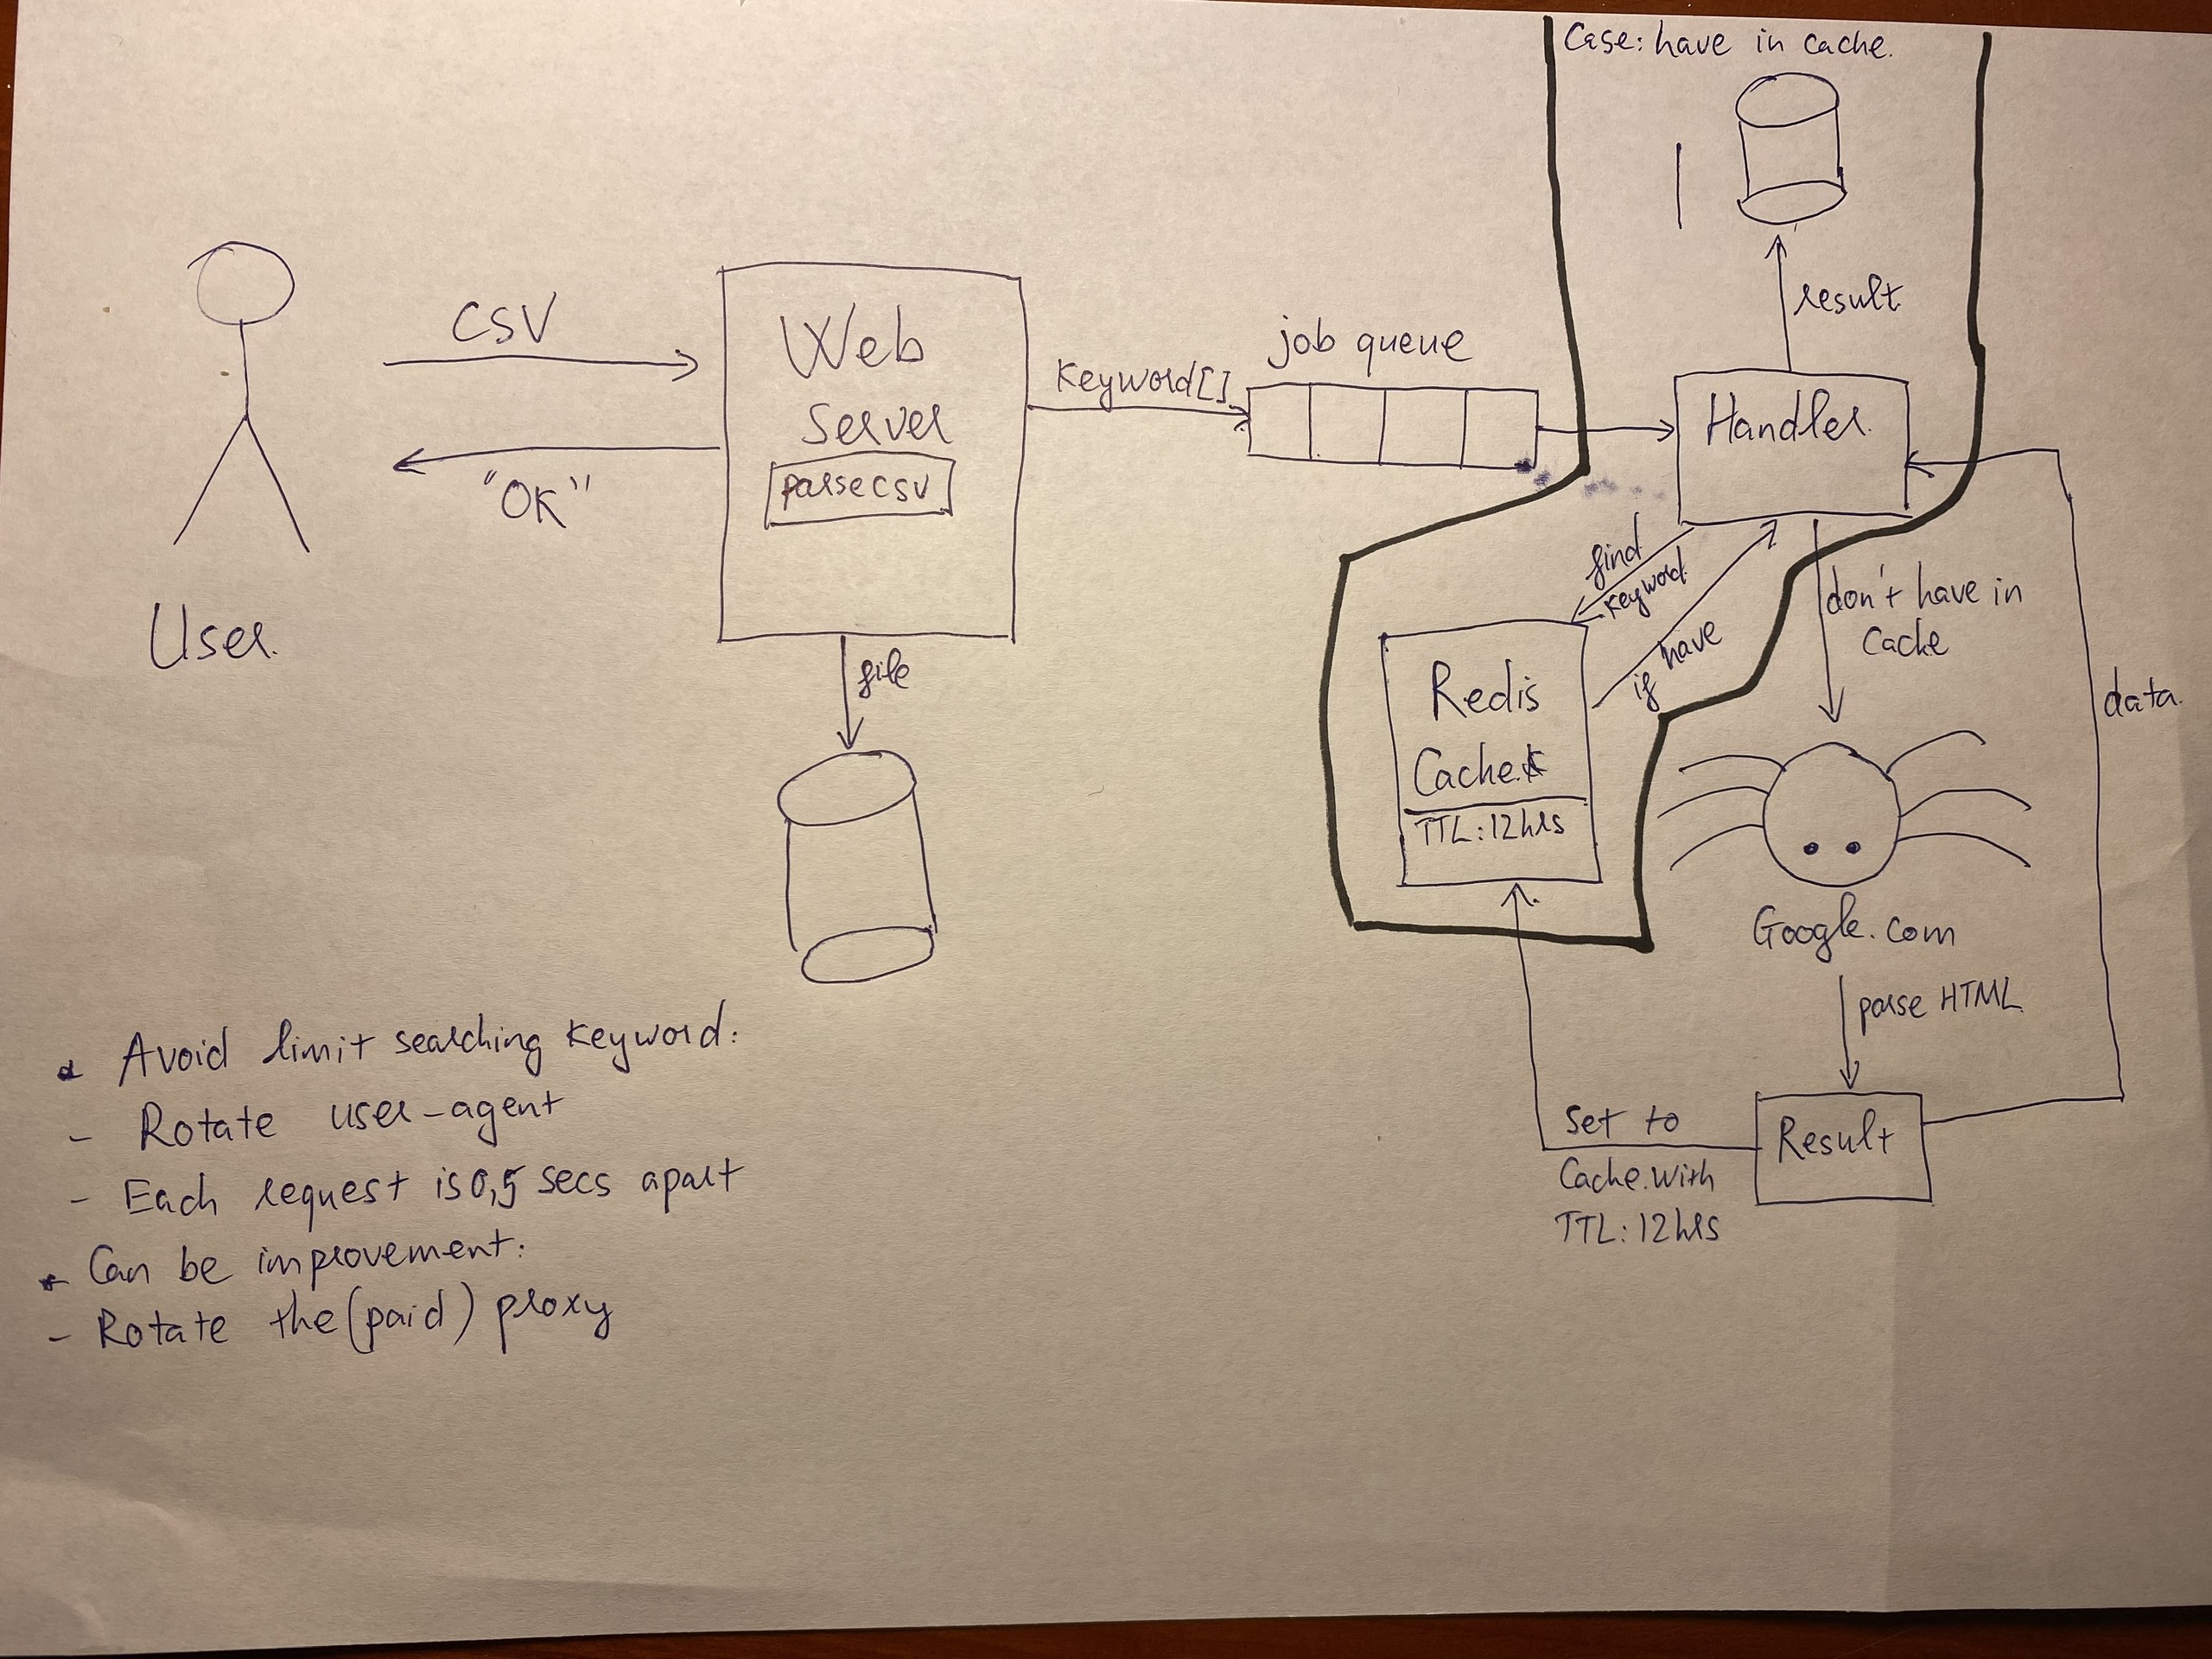 Case: have in cache.
result
CSV
Web
Server
parse CSV
"OK"
User.
file
Keyword[]
job queue
Handler
find
keyword
if have
don't have in
Cache
Redis
Cache
TTL: 12hrs
data
Google.com
parse HTML
Result
Set to
Cache with
TTL: 12hrs
* Avoid limit searching keyword:
- Rotate user-agent
- Each request is 0,5 secs apart
* Can be improvement:
- Rotate the (paid) proxy